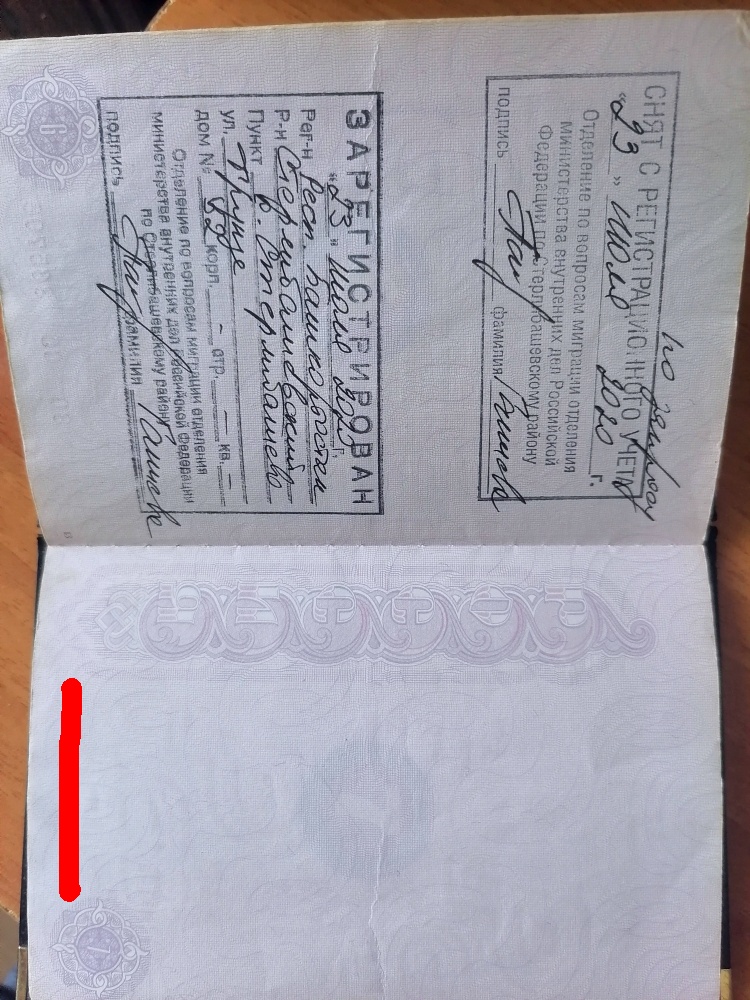 по запросу
СНЯТ С РЕГИСТРАЦИОННОГО УЧЕТА
"23" июля 2020 г.
Отделение по вопросам миграции отделения
министерства внутренних дел Российской
Федерации по Стерлибашевскому району
подпись фамилия
ЗАРЕГИСТРИРОВАН
"23" июля 2020 г.
Рег-н Респ. Башкортостан
Р-н Стерлибашевский
Пункт с. Стерлибашево
ул.
дом № 52 корп. – стр. – кв. –
Отделение по вопросам миграции отделения
министерства внутренних дел Российской Федерации
по Стерлибашевскому району
подпись фамилия
6
РОССИЯ
7